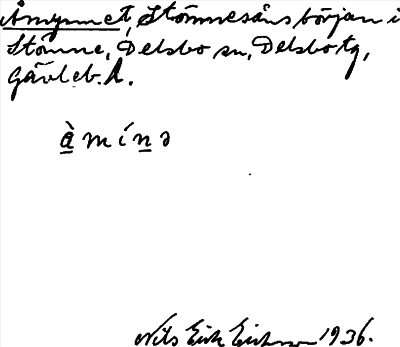 Åmynnet, Stömnesåns början i
Stömne, Delsbo sn, Delsbo tg,
Gävleb. l.
a̱̍̀ m í ṉ ə
Nils Erik Eriksson 1936.